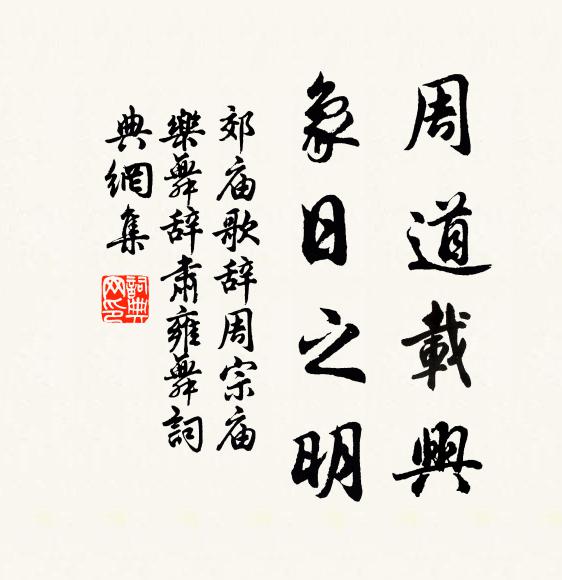 周道載興
象日之明
郊庙歌辞周宗庙
樂舞辞肅雍舞詞
典網集
詞典網印